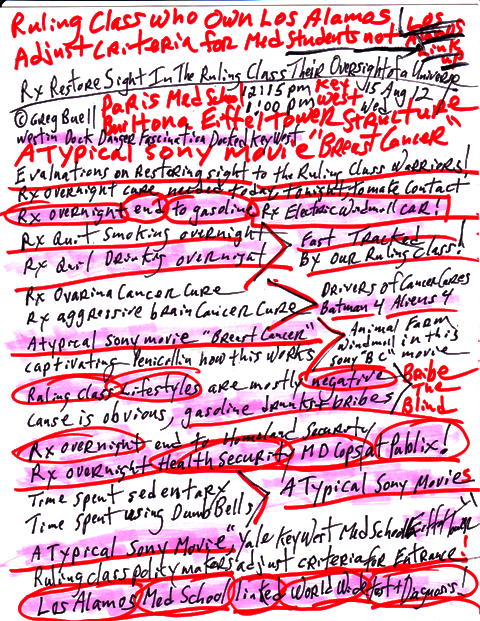 Ruling Class who own Los Alamos, Los
Adjust criteria for Med Students not Alamos
Link
ups
Rx Restore Sight In The Ruling Class Their Oversight of a Universe
©Greg Buell Paris Med School 12:15 pm Key 15 Aug 12
1:00 pm West Wed
Eiffel Tower Structure
Westin Dock Danger Fascination Docked Key West
A Typical Sony Movie "Breast Cancer"
Evaluations on Restoring sight to the Ruling Class Warriers!
Rx overnight cure needed today, tonight, to make contact
Rx overnight end to gasoline Rx Electric windmill car!
Rx Quit Smoking overnight
Fast Tracked
Rx Quit Drinking overnight By our Ruling Class!
Rx Ovarina Cancer Cure
Drivers of Cancer Cares
Rx aggressive brain Cancer Cure Batman 4 Aliens 4
Atypical Sony movie "Breast Cancer" Animal Farm
windmill in this
captivating Penicillin how this works Sony "B C" movie
Ruling Class Lifestyles are mostly negative Bribe
The
Cause is obvious, gasoline drunks + bribes Blind
Rx overnight end to Homeland Security
Rx overnight Health Security MD Cops at Publix!
Time spent sedentary
A Typical Sony Movies
Time spent using DumbBells
A Typical Sony Movie, "Yale Key West Med School Eiffel Tower"
Ruling class policy makers adjust criteria for Entrance!
Los Alamos Med School linked World Wide fast + Diagnosis!